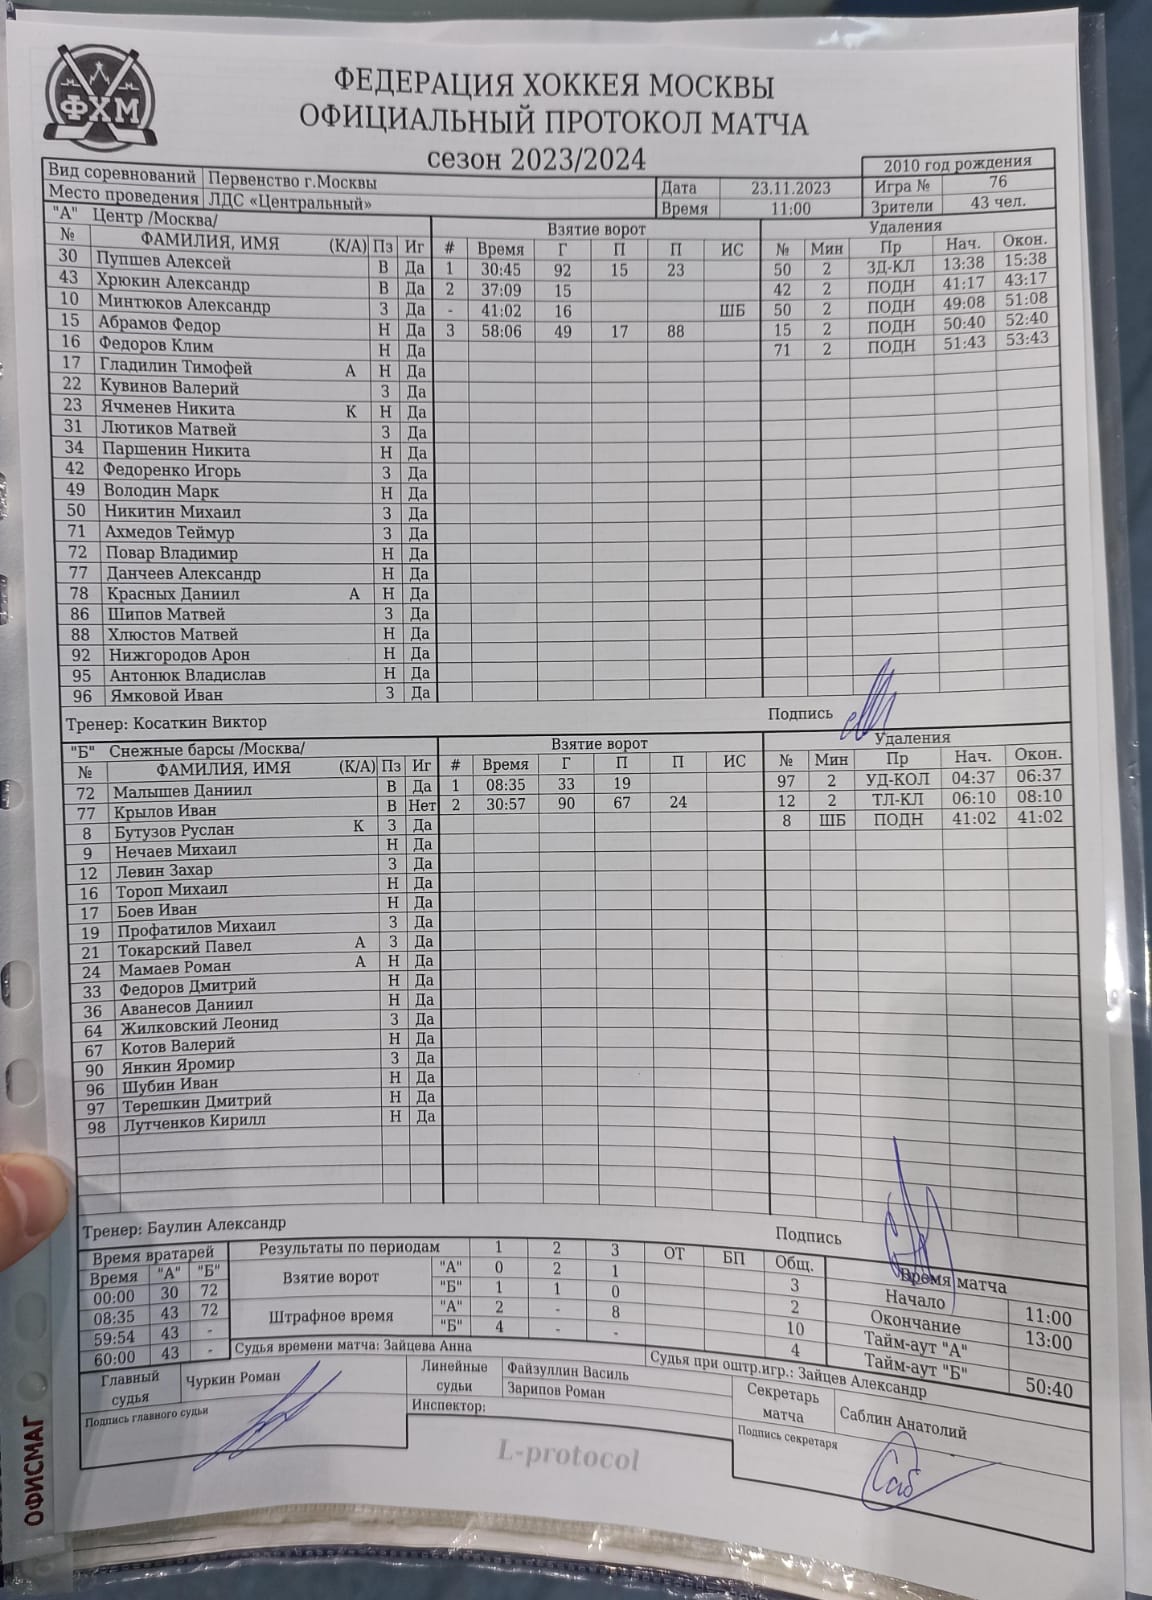 ФХМ
ФЕДЕРАЦИЯ ХОККЕЯ МОСКВЫ
ОФИЦИАЛЬНЫЙ ПРОТОКОЛ МАТЧА
сезон 2023/2024
2010 год рождения
Вид соревнований Первенство г.Москвы Дата 23.11.2023 Игра № 76
Место проведения ЛДС «Центральный» Время 11:00 Зрители 43 чел.
"А" Центр /Москва/ Взятие ворот Удаления
№ ФАМИЛИЯ, ИМЯ (К/А) Пз Иг # Время Г П П ИС № Мин Пр Нач. Окон.
30 Пупшев Алексей В Да 1 30:45 92 15 23 50 2 ЗД-КЛ 13:38 15:38
43 Хрюкин Александр В Да 2 37:09 15 42 2 ПОДН 41:17 43:17
10 Минтюков Александр З Да - 41:02 16 ШБ 50 2 ПОДН 49:08 51:08
15 Абрамов Федор Н Да 3 58:06 49 17 88 15 2 ПОДН 50:40 52:40
16 Федоров Клим Н Да 71 2 ПОДН 51:43 53:43
17 Гладилин Тимофей А Н Да
22 Кувинов Валерий З Да
23 Ячменев Никита К Н Да
31 Лютиков Матвей З Да
34 Паршенин Никита Н Да
42 Федоренко Игорь З Да
49 Володин Марк Н Да
50 Никитин Михаил З Да
71 Ахмедов Теймур З Да
72 Повар Владимир Н Да
77 Данчеев Александр Н Да
78 Красных Даниил А Н Да
86 Шипов Матвей З Да
88 Хлюстов Матвей Н Да
92 Нижгородов Арон Н Да
95 Антонюк Владислав Н Да
96 Ямковой Иван З Да
Тренер: Косаткин Виктор Подпись
"Б" Снежные барсы /Москва/ Взятие ворот Удаления
№ ФАМИЛИЯ, ИМЯ (К/А) Пз Иг # Время Г П П ИС № Мин Пр Нач. Окон.
72 Малышев Даниил В Да 1 08:35 33 19 97 2 УД-КОЛ 04:37 06:37
77 Крылов Иван В Нет 2 30:57 90 67 24 12 2 ТЛ-КЛ 06:10 08:10
8 Бутузов Руслан К З Да 8 ШБ ПОДН 41:02 41:02
9 Нечаев Михаил Н Да
12 Левин Захар З Да
16 Тороп Михаил Н Да
17 Боев Иван Н Да
19 Профатилов Михаил З Да
21 Токарский Павел А З Да
24 Мамаев Роман А Н Да
33 Федоров Дмитрий Н Да
36 Аванесов Даниил Н Да
64 Жилковский Леонид З Да
67 Котов Валерий Н Да
90 Янкин Яромир З Да
96 Шубин Иван Н Да
97 Терешкин Дмитрий Н Да
98 Лутченков Кирилл Н Да
Тренер: Баулин Александр Подпись
Время вратарей Результаты по периодам 1 2 3 ОТ БП Общ. Время матча
Время "А" "Б" Взятие ворот "А" 0 2 1 3 Начало 11:00
00:00 30 72 "Б" 1 1 0 2 Окончание 13:00
08:35 43 72 Штрафное время "А" 2 - 8 10 Тайм-аут "А"
59:54 43 - "Б" 4 - - 4 Тайм-аут "Б" 50:40
60:00 43 - Судья времени матча: Зайцева Анна Судья при оштр.игр.: Зайцев Александр
Главный судья Чуркин Роман Линейные судьи Файзуллин Василь
Зарипов Роман
Секретарь матча Саблин Анатолий
Подпись главного судьи Инспектор: Подпись секретаря
Саб
L-protocol
ОФИСМАГ